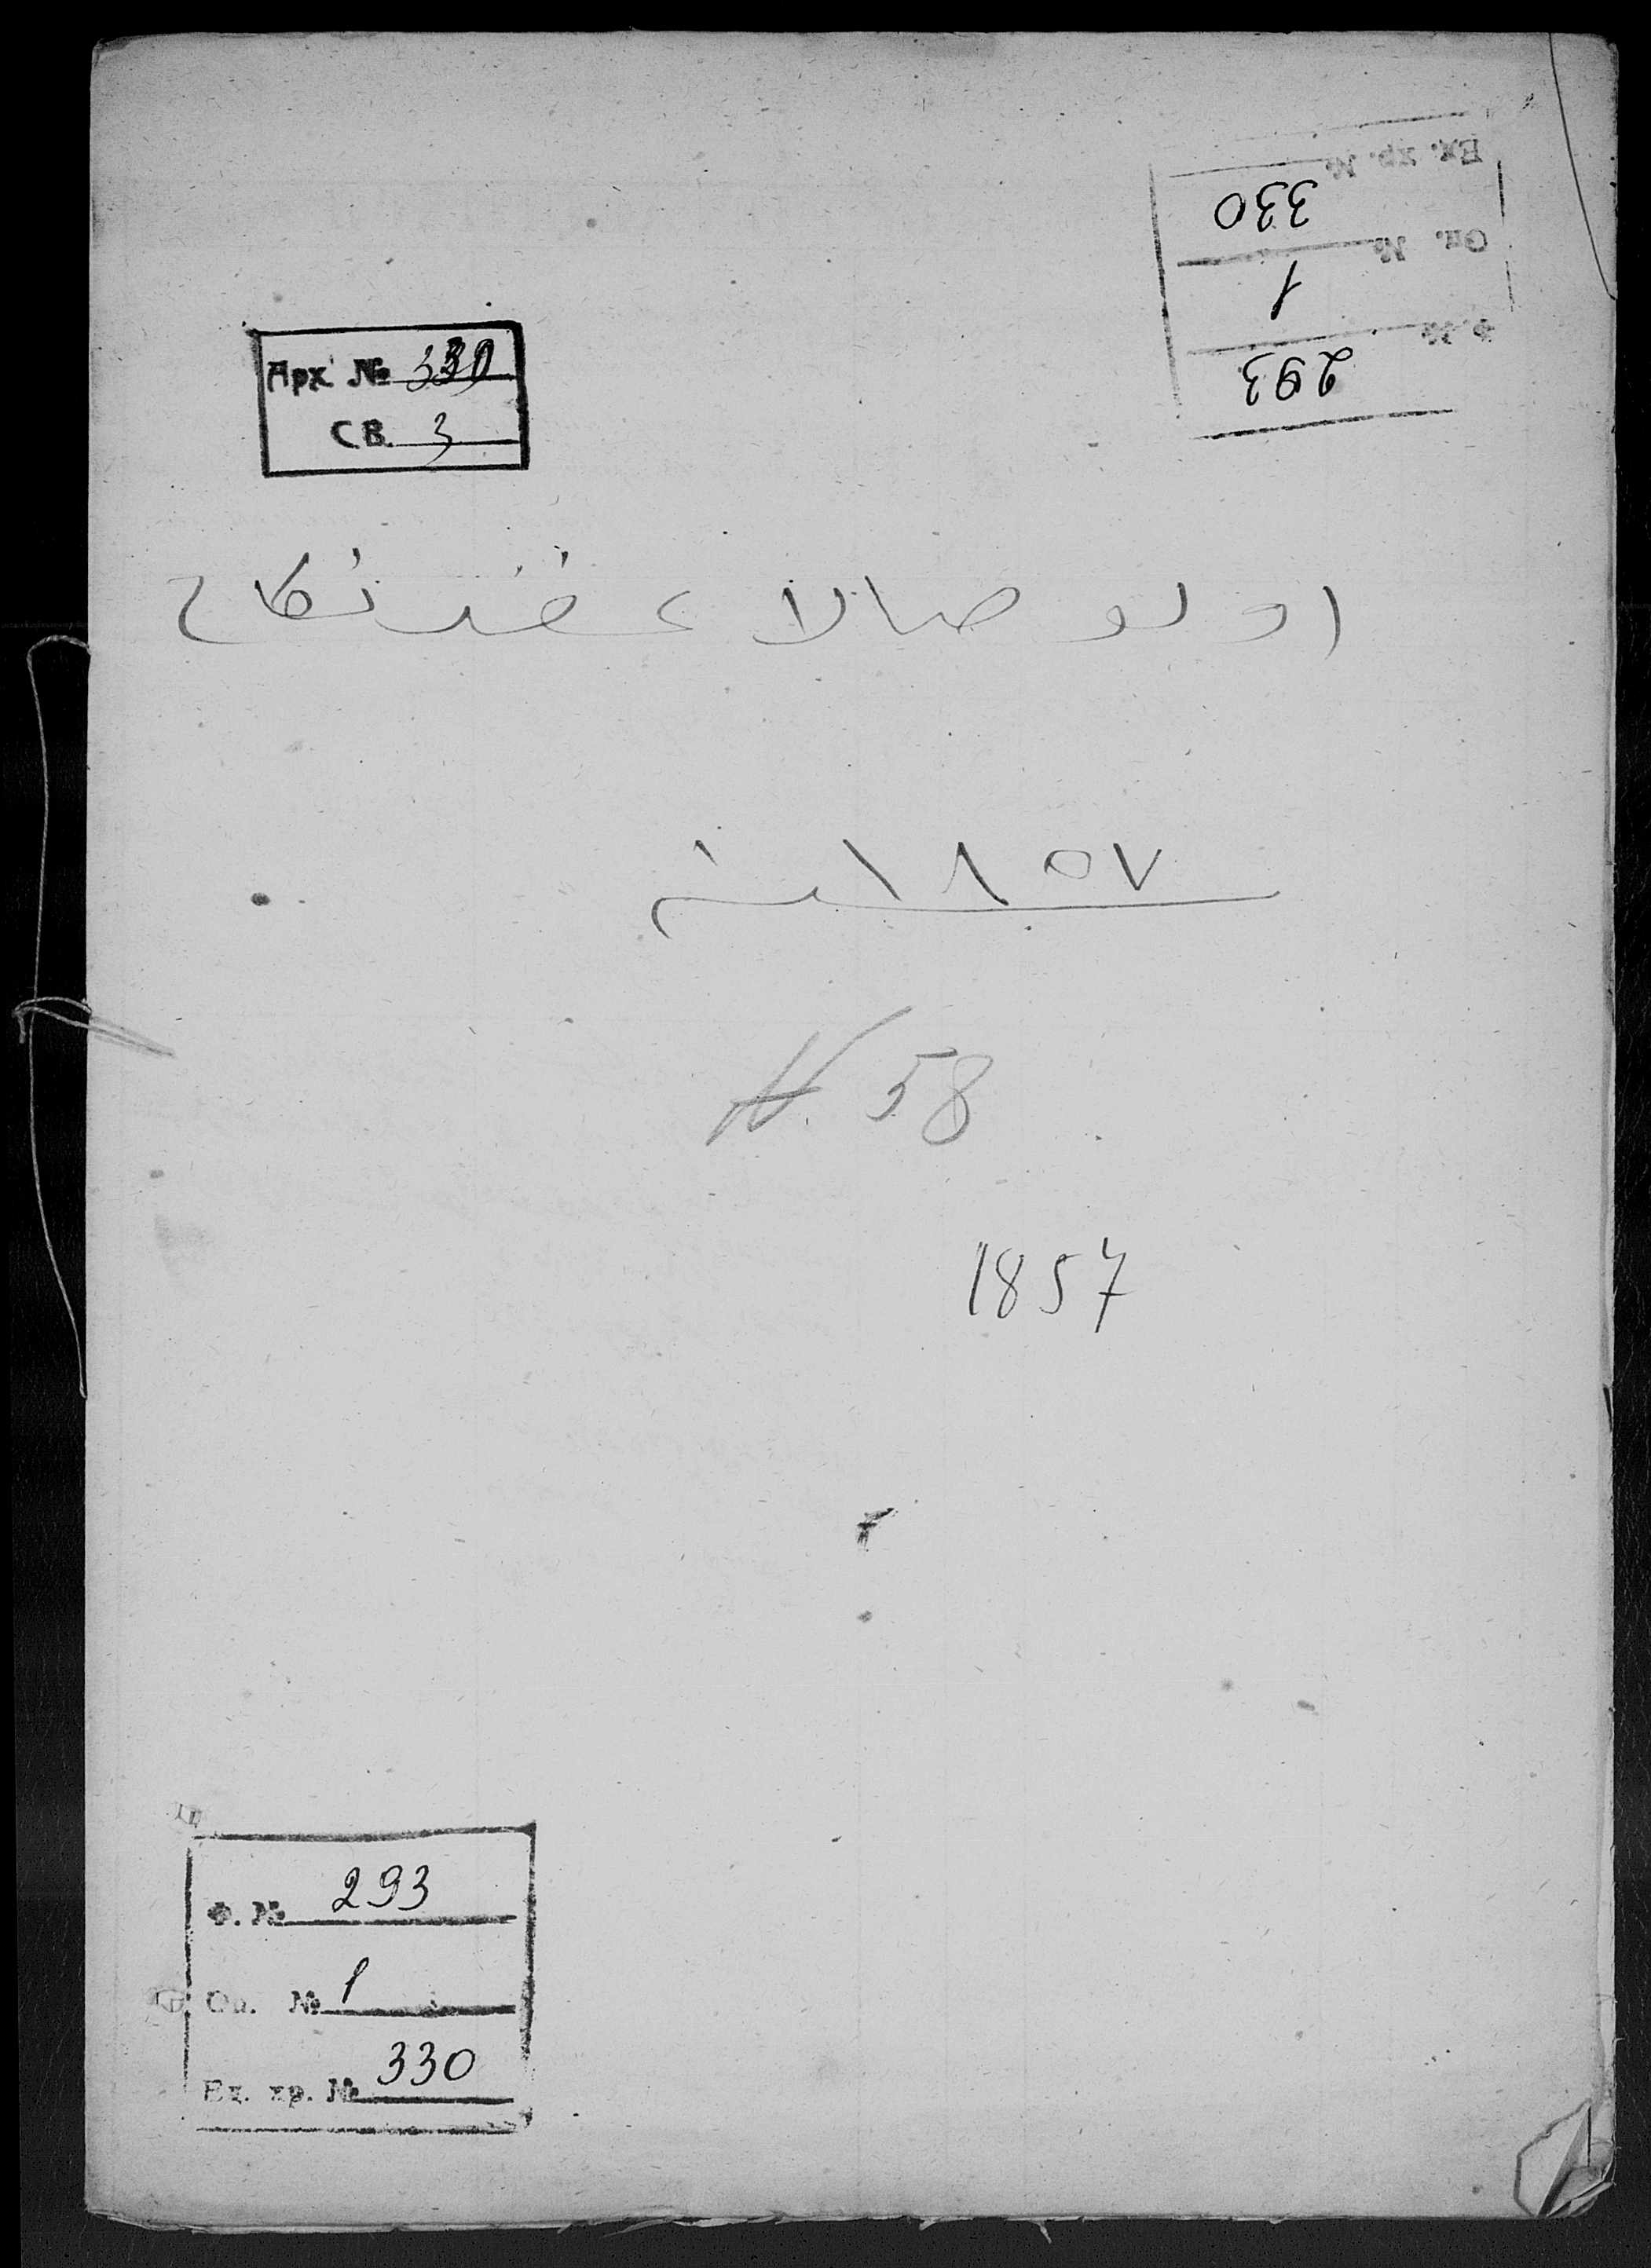 Ех. хр. № 330
Оп. № 1
Ф. № 293
Арх. № 330
СВ. 3
اولو صالا عقد نكاح
١٨٥٧ سنه
N. 58
1857
Ф. № 293
Оп. № 1
Ех. хр. № 330